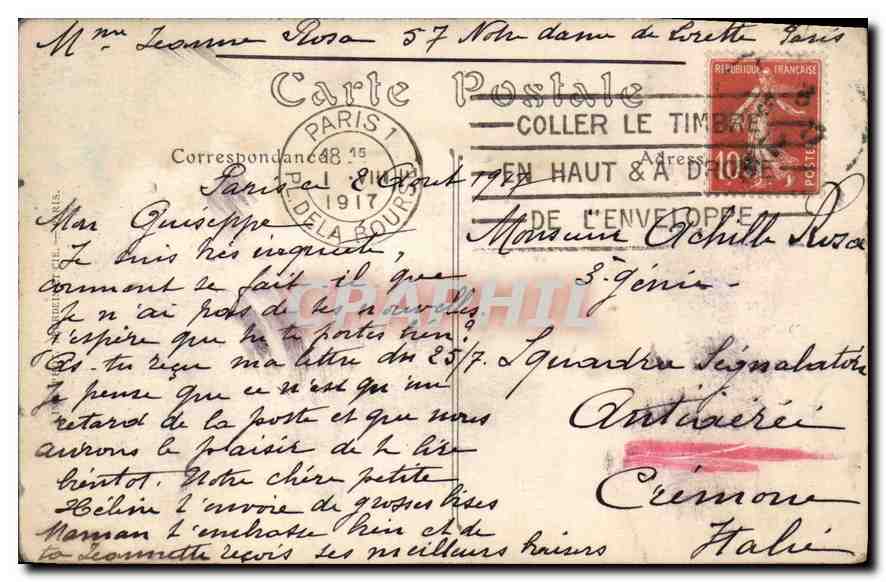 Mme Jeanne Rosa 57 Notre dame de Lorette Paris
Carte Postale
REPUBLIQUE FRANÇAISE
10
POSTES
PARIS 1
18 15
1 VIII
1917
PL. DE LA BOURSE
COLLER LE TIMBRE
EN HAUT & A DROITE
DE L'ENVELOPPE
Correspondance
Adresse
Paris ce 2 Aout 1917
Mon Guiseppe
Je suis très inquiète,
comment se fait il que
je n'ai pas de tes nouvelles.
J'espère que tu te portes bien?
As-tu reçu ma lettre du 25/7.
Je pense que ce n'est qu'un
retard de la poste et que nous
aurons le plaisir de te lire
bientot. Notre chère petite
Hélène t'envoie de grosses bises
Maman t'embrasse bien et de
ta Jeannette reçois ses meilleurs baisers
Monsieur Achille Rosa
3e Génie
Squadra Segnalatori
Antiaérei
Crémone
Italie
CRAPHIL
CIE. - PARIS.